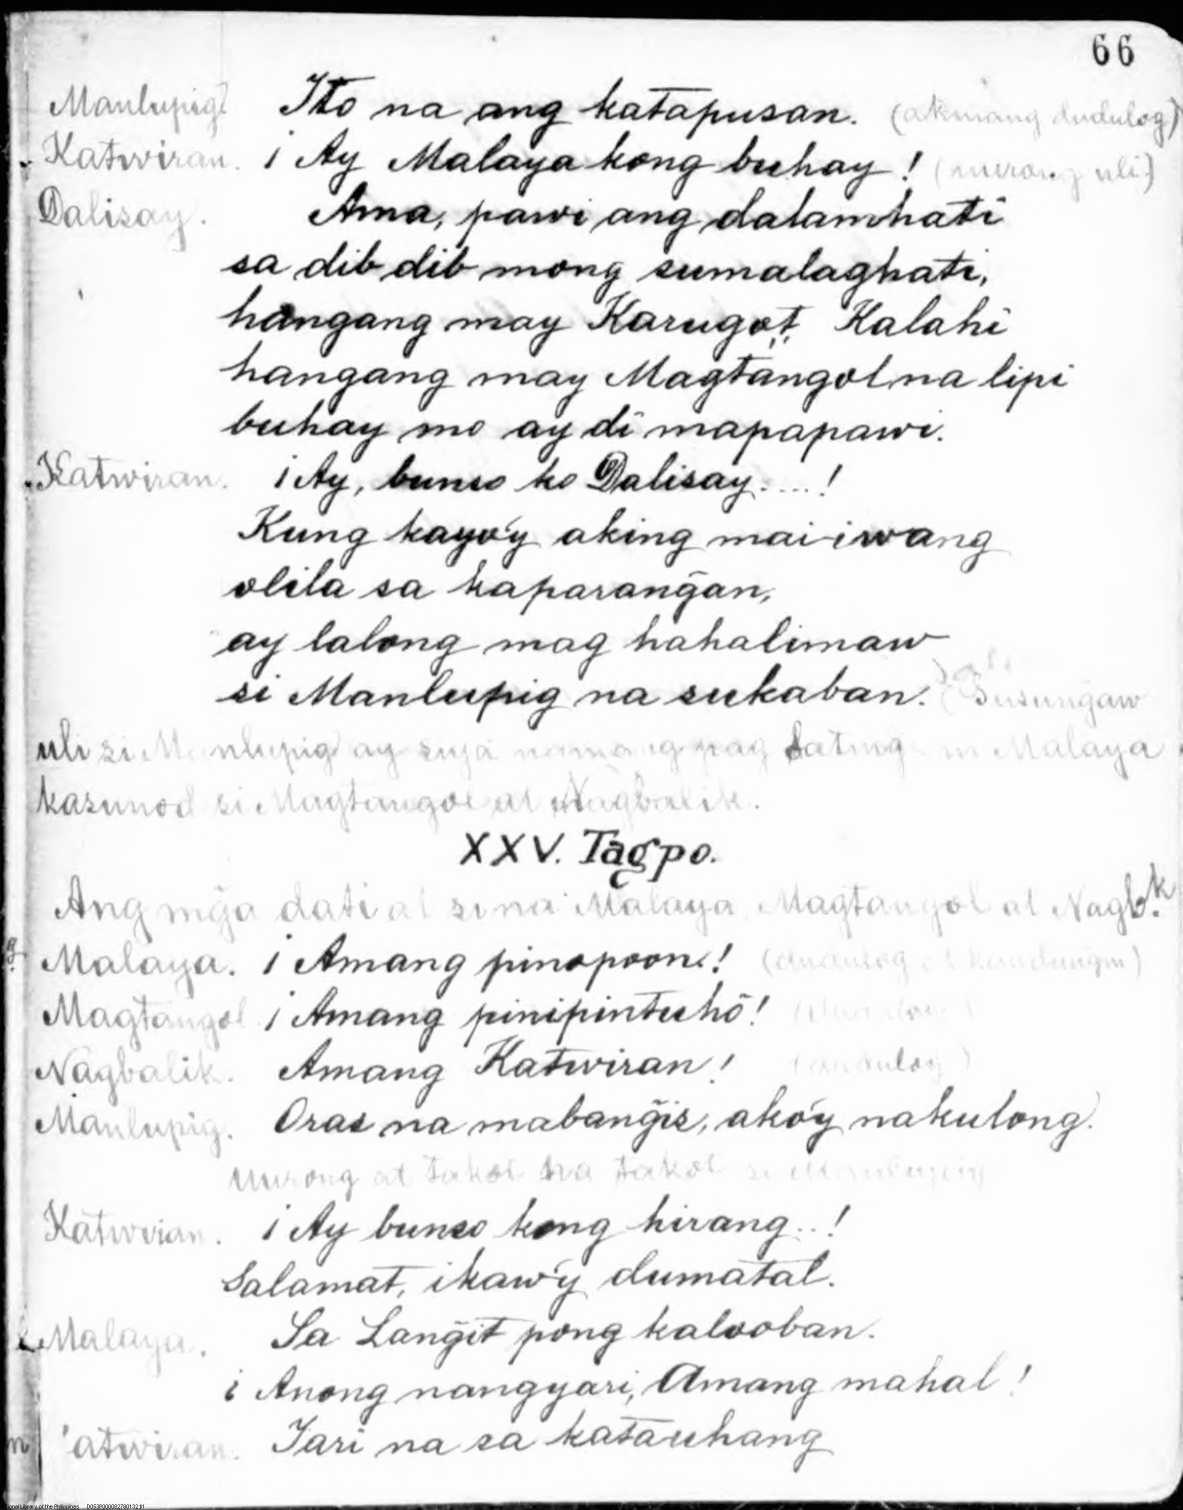 66
Manlupig Ito na ang katapusan. (akmang dudulog)
Katwiran. ¡ Ay Malaya kong buhay ! (uli)
Dalisay. Ama, pawi ang dalamhati
sa dib dib mong sumalaghati,
hangang may Karugo't Kalahi
hangang may Magtangol na lipi
buhay mo ay di mapapawi.
Katwiran. ¡ Ay, bunso ko Dalisay....!
Kung kayo'y aking mai-iwang
olila sa kaparang̃an,
ay lalong mag hahalimaw
si Manlupig na sukaban. (Dusung̃aw
uli si Manlupig ay siya namang pag dating ni Malaya
kasunod si Magtangol at Nagbalik.
XXV. Tagpo.
Ang mg̃a dati at sina Malaya, Magtangol at Nagb.k
Malaya. ¡ Amang pinopoon.! (dudulog at kandung̃in)
Magtangol ¡ Amang pinipintuhò!
Nagbalik. Amang Katwiran! (dudulog)
Manlupig. Oras na mabang̃is, ako'y nakulong.
Uurong at takot na takot si Manlupig
Katwiran. ¡ Ay bunso kong hirang..!
Salamat, ikaw'y dumatal.
Malaya. Sa Lang̃it pong kalooban.
¡ Anong nangyari, Amang mahal !
atwiran. Yari na sa katauhang